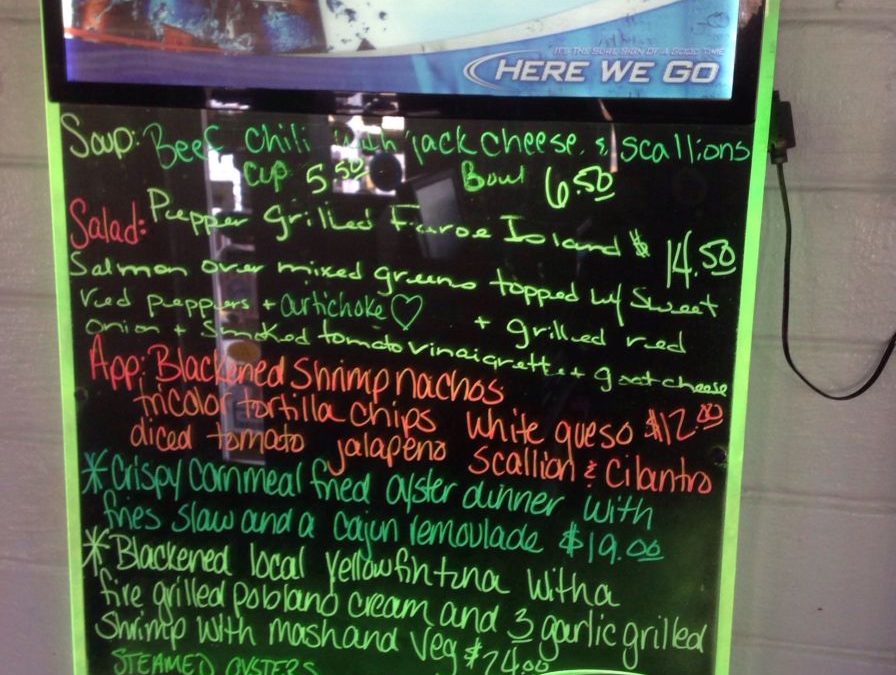 IT'S THE SURE SIGN OF A GOOD TIME
HERE WE GO
Soup: Beef chili with jack cheese, & scallions
Cup 5.50 Bowl 6.50
Salad: Pepper Grilled Faroe Island $14.50
Salmon over mixed greens topped w/ Sweet
red peppers + artichoke ♡ + grilled red
onion + Smoked tomato vinaigrette + goat cheese
App: Blackened Shrimp nachos
tricolor tortilla chips white queso $12.00
diced tomato jalapeno scallion & cilantro
*Crispy cornmeal fried oyster dinner with
fries slaw and a cajun remoulade $19.00
*Blackened local yellowfin tuna with a
fire grilled poblano cream and 3 garlic grilled
shrimp with mash and veg $24.00
STEAMED OYSTERS